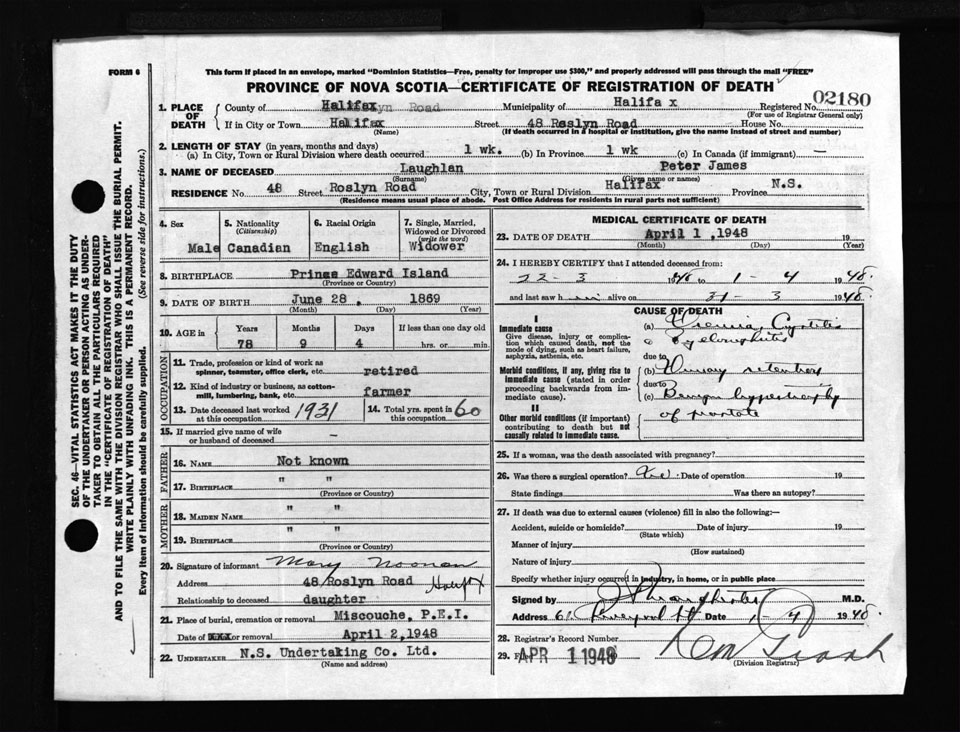 FORM 6
This form if placed in an envelope, marked "Dominion Statistics—Free, penalty for improper use $300," and properly addressed will pass through the mail "FREE"
PROVINCE OF NOVA SCOTIA—CERTIFICATE OF REGISTRATION OF DEATH
1. PLACE OF DEATH
County of Halifax Road Municipality of Halifa x Registered No. 02180
(For use of Registrar General only)
If in City or Town Halifax Street 48 Roslyn Road House No.
(Name) (If death occurred in a hospital or institution, give the name instead of street and number)
2. LENGTH OF STAY (in years, months and days)
(a) In City, Town or Rural Division where death occurred 1 wk. (b) In Province 1 wk (c) In Canada (if immigrant) —
3. NAME OF DECEASED Laughlan Peter James
(Surname) (Given name or names)
RESIDENCE No. 48 Street Roslyn Road City, Town or Rural Division Halifax Province N.S.
(Residence means usual place of abode. Post Office Address for residents in rural parts not sufficient)
4. Sex Male
5. Nationality (Citizenship) Canadian
6. Racial Origin English
7. Single, Married, Widowed or Divorced (write the word) Widower
8. BIRTHPLACE Prince Edward Island
(Province or Country)
9. DATE OF BIRTH June 28, 1869
(Month) (Day) (Year)
10. AGE in Years Months Days If less than one day old
78 9 4 hrs. or min.
OCCUPATION
11. Trade, profession or kind of work as spinner, teamster, office clerk, etc. retired
12. Kind of industry or business, as cotton-mill, lumbering, bank, etc. farmer
13. Date deceased last worked at this occupation 1931
14. Total yrs. spent in this occupation 60
15. If married give name of wife or husband of deceased —
FATHER
16. NAME Not known
17. BIRTHPLACE " "
(Province or Country)
MOTHER
18. MAIDEN NAME " "
19. BIRTHPLACE " "
(Province or Country)
20. Signature of informant Mary Noonan
Address 48 Roslyn Road Halifx
Relationship to deceased daughter
21. Place of burial, cremation or removal Miscouche, P.E.I.
Date of or removal April 2, 1948
22. UNDERTAKER N.S. Undertaking Co. Ltd.
(Name and address)
MEDICAL CERTIFICATE OF DEATH
23. DATE OF DEATH April 1, 1948 19
(Month) (Day) (Year)
24. I HEREBY CERTIFY that I attended deceased from:
22-3 1948 to 1-4 1948.
and last saw him alive on 31-3 1948.
CAUSE OF DEATH
I
Immediate cause
Give disease, injury or complication which caused death, not the mode of dying, such as heart failure, asphyxia, asthenia, etc.
(a) Uremia, Cystitis
& Pyelonephritis
due to
Morbid conditions, if any, giving rise to immediate cause (stated in order proceeding backwards from immediate cause).
(b) Urinary retention
due to
(c) Benign hypertrophy
of prostate
II
Other morbid conditions (if important) contributing to death but not causally related to immediate cause.
25. If a woman, was the death associated with pregnancy?
26. Was there a surgical operation? Date of operation 19
State findings Was there an autopsy?
27. If death was due to external causes (violence) fill in also the following:—
Accident, suicide or homicide? Date of injury 19
(State which)
Manner of injury
(How sustained)
Nature of injury
Specify whether injury occurred in industry, in home, or in public place
Signed by M.D.
Address Liverpool St Date 1-4 1948.
28. Registrar's Record Number
29. APR 1 1948
(Division Registrar)
SEC. 46—VITAL STATISTICS ACT MAKES IT THE DUTY
OF THE UNDERTAKER OR PERSON ACTING AS UNDER-
TAKER TO OBTAIN ALL THE PARTICULARS REQUIRED
IN THE "CERTIFICATE OF REGISTRATION OF DEATH"
AND TO FILE THE SAME WITH THE DIVISION REGISTRAR WHO SHALL ISSUE THE BURIAL PERMIT.
WRITE PLAINLY WITH UNFADING INK. THIS IS A PERMANENT RECORD.
Every item of information should be carefully supplied. (See reverse side for instructions.)